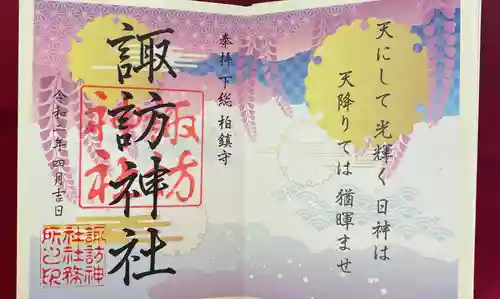 天にして光輝く日神は
天降りては猶暉ませ
奉拝 下総 柏鎮守
諏訪神社
諏方
神社
令和二年四月吉日
諏訪神
社社務
所之印